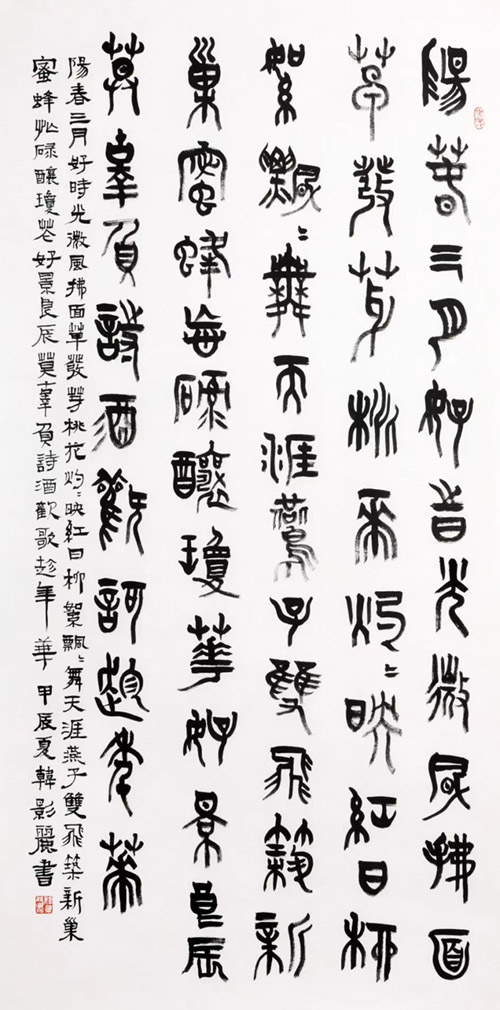 陽春三月好時光微風拂面
草發芽桃花灼〻映紅日柳
絮飄〻舞天涯燕子雙飛築新
巢蜜蜂忙碌釀瓊華好景良辰
莫辜負詩酒歡歌趁年華
陽春三月好時光微風拂面草發芽桃花灼〻映紅日柳絮飄〻舞天涯燕子雙飛築新巢
蜜蜂忙碌釀瓊花好景良辰莫辜負詩酒歡歌趁年華 甲辰夏韓影麗書